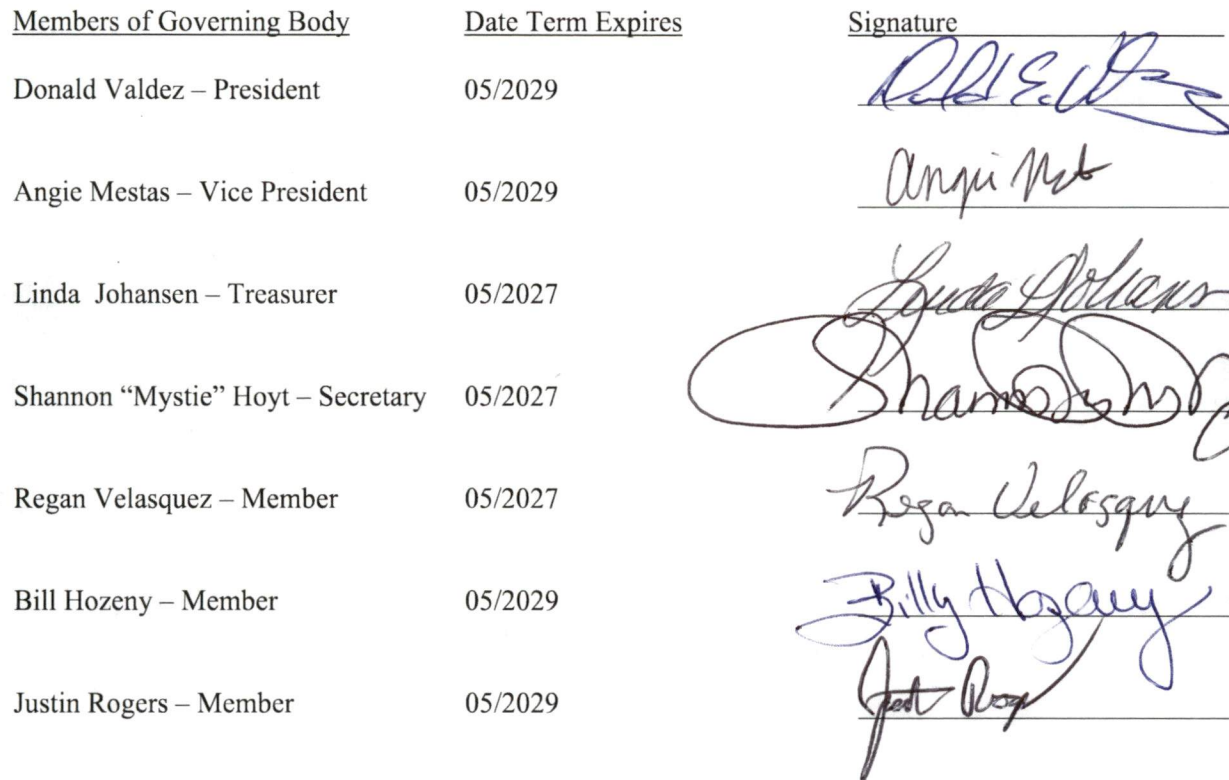 Members of Governing Body Date Term Expires Signature
Donald Valdez – President 05/2029
Angie Mestas – Vice President 05/2029 Angie
Linda Johansen – Treasurer 05/2027 Linda Johans
Shannon “Mystie” Hoyt – Secretary 05/2027
Regan Velasquez – Member 05/2027 Regan Velasquez
Bill Hozeny – Member 05/2029 Billy Hozeny
Justin Rogers – Member 05/2029